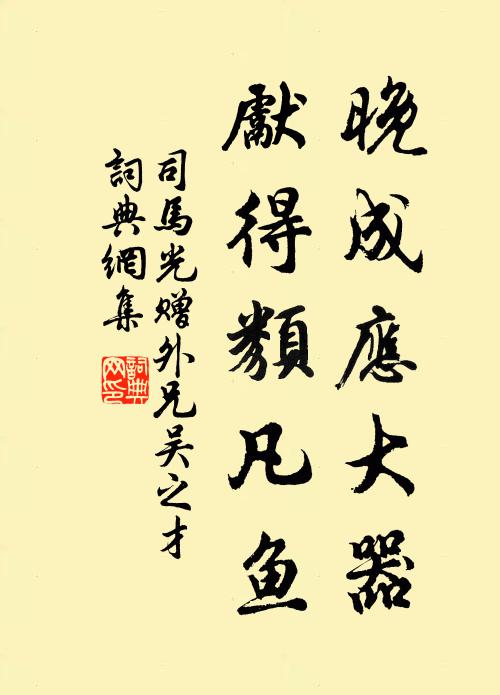 晚成應大器
獻得類凡鱼
司馬光贈外兄吴之才
詞典網集
詞典
网印